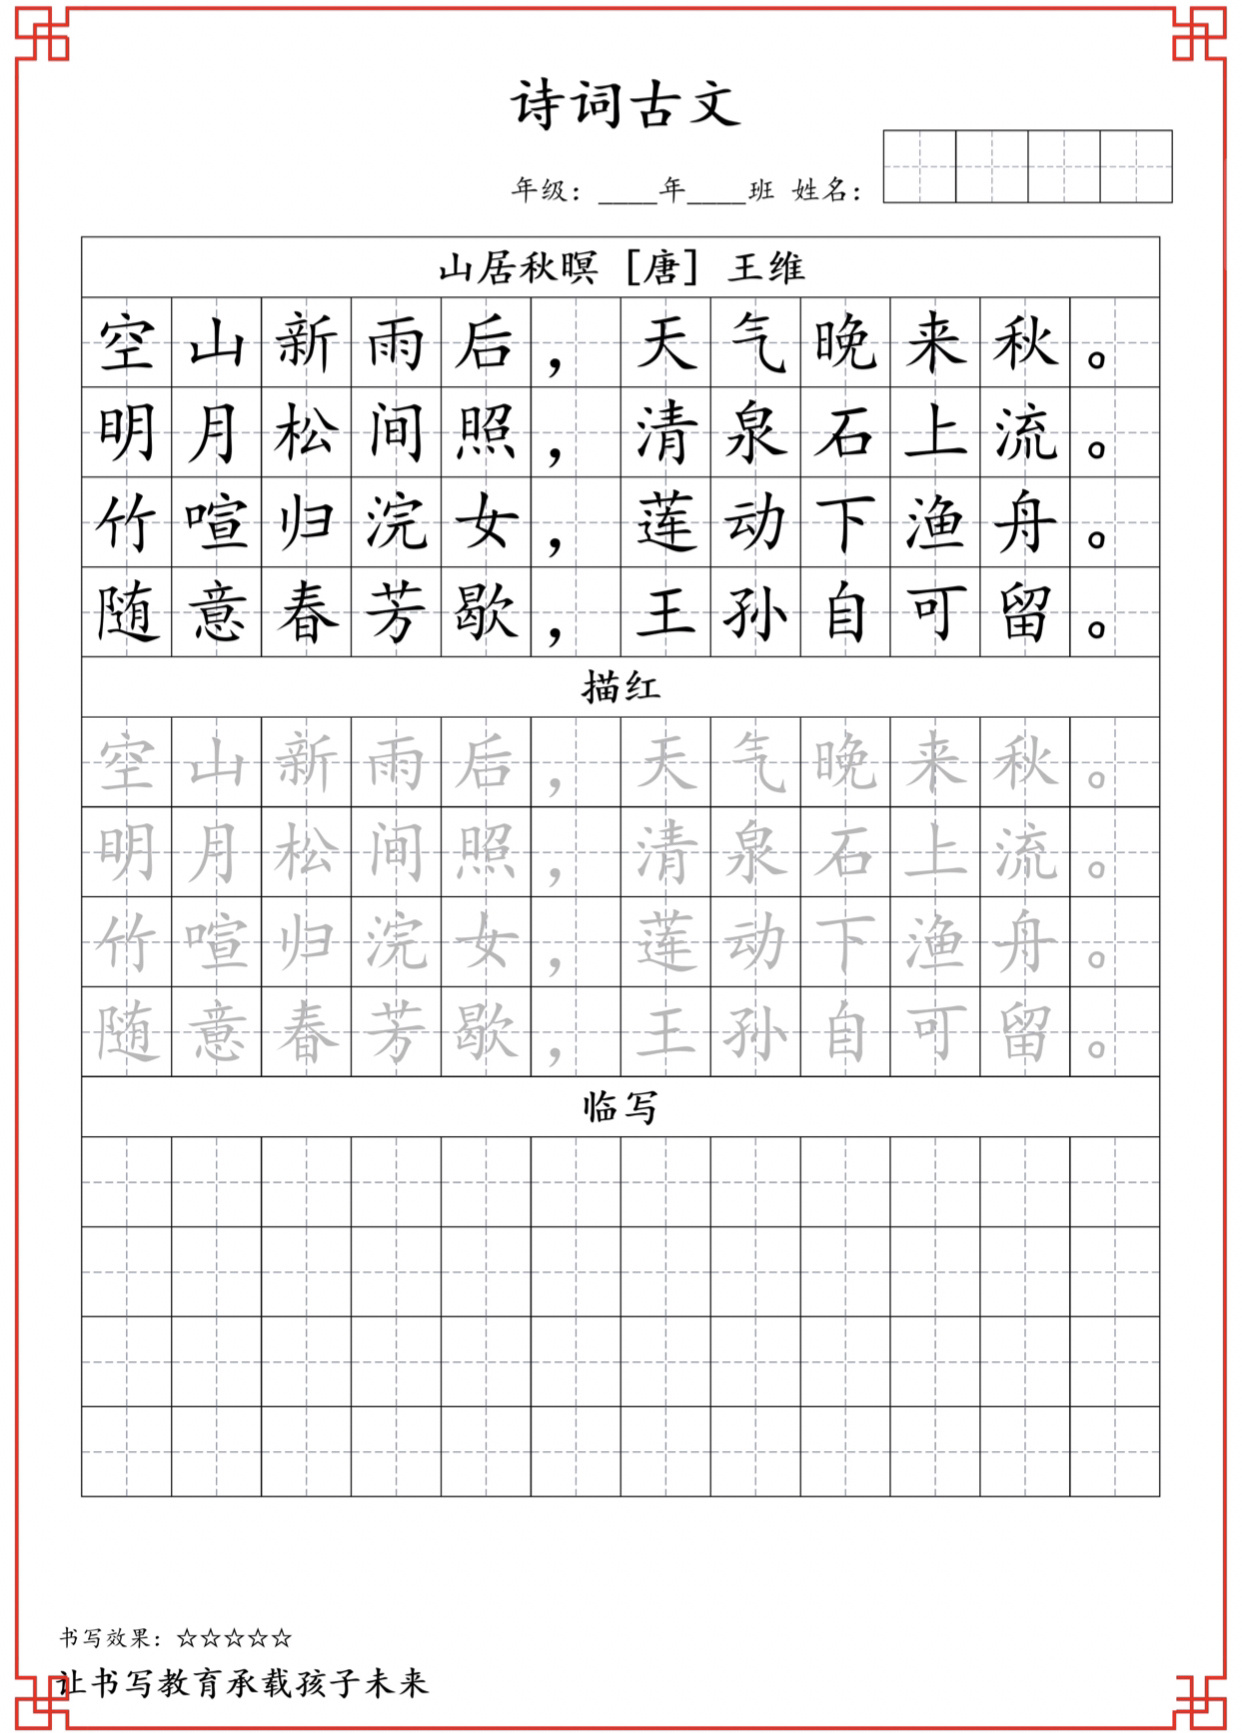 诗词古文
年级：____年____班 姓名：
山居秋暝 [唐] 王维
空山新雨后，天气晚来秋。
明月松间照，清泉石上流。
竹喧归浣女，莲动下渔舟。
随意春芳歇，王孙自可留。
描红
空山新雨后，天气晚来秋。
明月松间照，清泉石上流。
竹喧归浣女，莲动下渔舟。
随意春芳歇，王孙自可留。
临写
书写效果：☆☆☆☆☆
让书写教育承载孩子未来